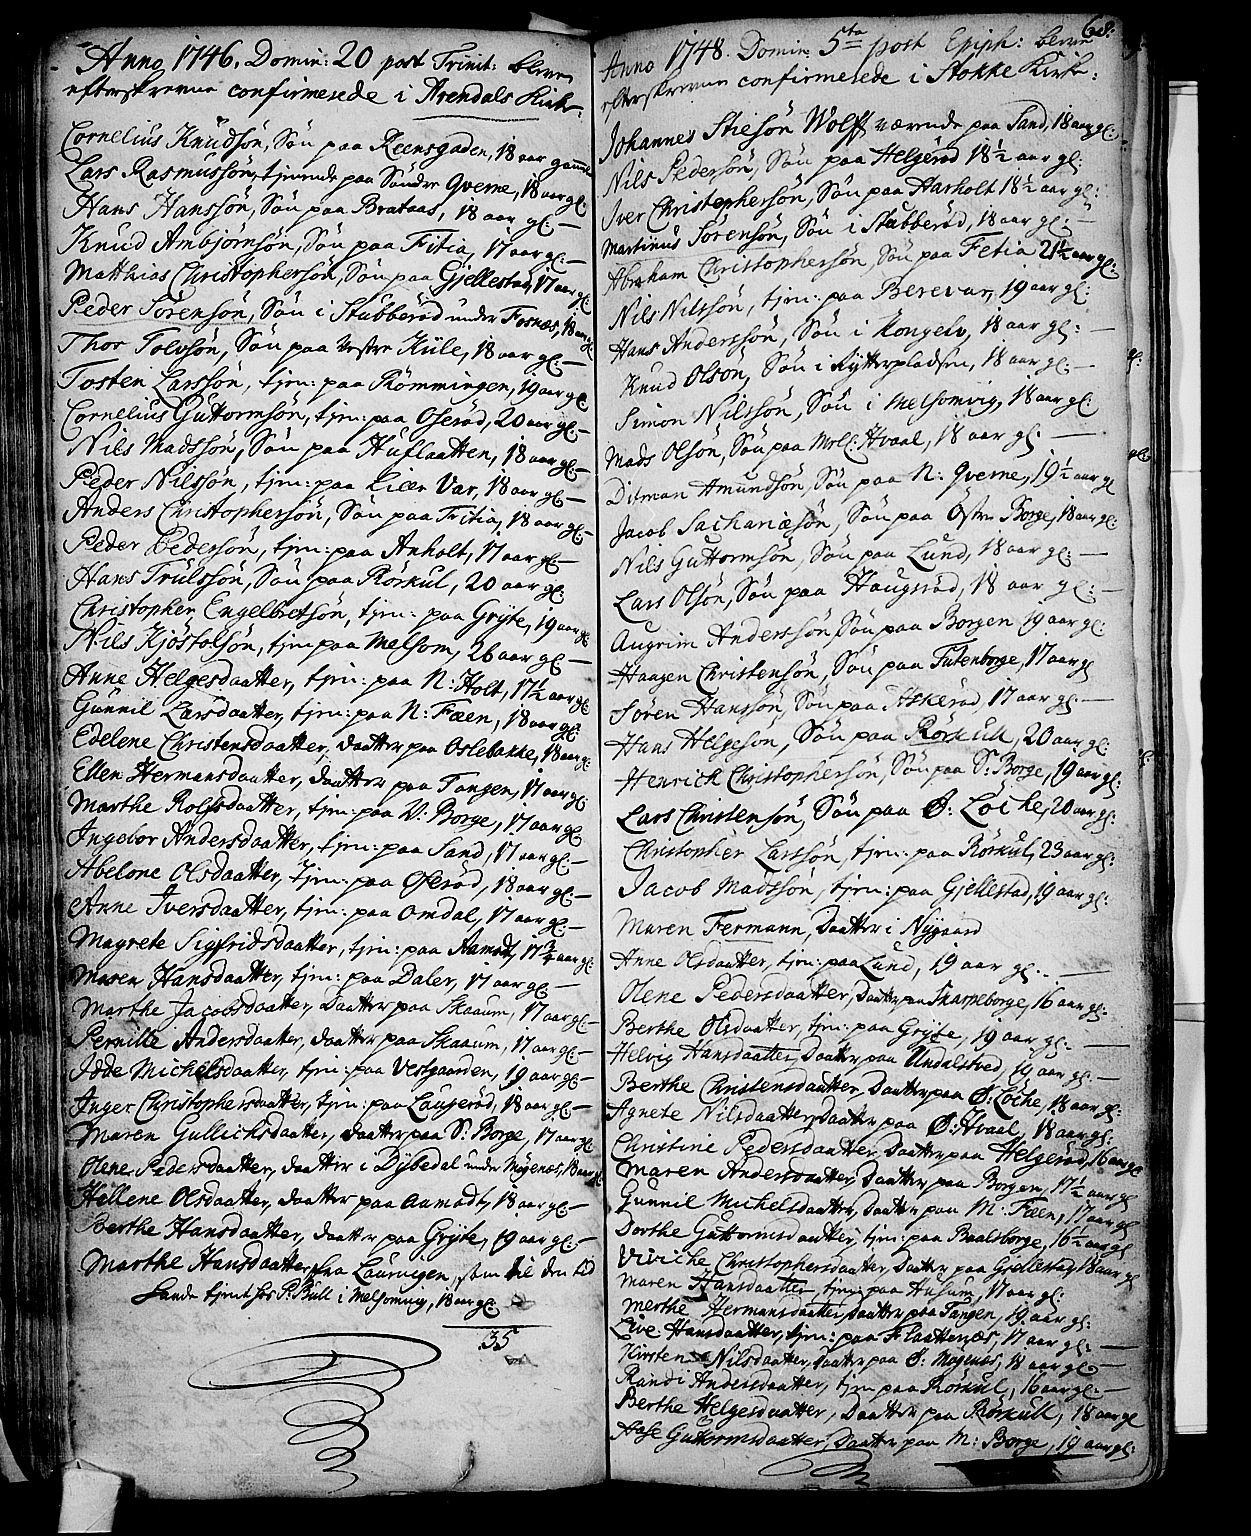 Anno 1746. Domin: 20 post Trinit: bleve
efterskrevne confirmerede i Arendals Kirke.
Cornelius Knudsön, Sön paa Reensgaden, 18 aar gammel
Lars Rasmussön, tjenende paa Söndre Qverne, 18 aar gl:
Hans Hanssön, Sön paa Brataas, 18 aar gl: —
Knud Ambjörnsön, Sön paa Fitia, 17 aar gl: —
Matthias Christophersön, Sön paa Gjellestad, 17 aar gl:
Peder Sörensön, Sön i Stubberöd under Fosnæs, 18 aar gl
Thor Tolvsön, Sön paa Vestre Kiile, 18 aar gl: —
Tosten Larssön, tjen: paa Römmingen, 19 aar gl:
Cornelius Guttormsön, tjen: paa Oseröd, 20 aar gl: —
Nils Madssön, Sön paa Huflaatten, 18 aar gl: —
Peder Nilssön, tjen: paa Lille Var, 18 aar gl: —
Anders Christophersön, Sön paa Fitia, 18 aar gl: —
Peder Pedersön, tjen: paa Anholt, 17 aar gl: —
Hans Trulssön, Sön paa Rörkul, 20 aar gl:
Christopher Engelbretsön, tjen: paa Gryte, 19 aar gl:
Nils Kjöstolsön, tjen paa Melsom, 26 aar gl: —
Anne Helgesdaatter, tjen: paa N: Holt, 17½ aar gl:
Gunnil Larsdaatter, tjen: paa N: Fæen, 18 aar gl:
Edelene Christensdaatter, daatter paa Oslebakke, 18 aar gl:
Ellen Hermansdaatter, daatter paa Tangen, 17 aar gl:
Marthe Rolfsdaatter, tjen: paa V: Borge, 17 aar gl:
Ingebor Andersdaatter, tjen: paa Sand, 17 aar gl: —
Abelone Olsdaatter, tjen: paa Oseröd, 18 aar gl: —
Anne Iversdaatter, tjen: paa Omdal, 17 aar gl: —
Magrete Sigfridsdaatter, tjen: paa Aamodt, 17¾ aar gl:
Maren Hansdaatter, tjen: paa Daler, 17 aar gl: —
Marthe Jacobsdaatter, Daatter paa Skaaum, 17 aar gl: —
Pernille Andersdaatter, daatter paa Skaaum, 17 aar gl: —
Idde Michelsdaatter, tjen: paa Vestgaarden, 19 aar gl: —
Inger Christophersdaatter, tjen: paa Laugeröd, 18 aar gl: —
Maren Gullichsdaatter, daatter paa S: Borge, 17 aar gl:
Olene Pedersdaatter, daatter i Dybedal under Möyenæs, 18 aar gl
Hellene Olsdaatter, daatter paa Aamodt, 18 aar gl: —
Berthe Hansdaatter, daatter paa Gryte, 19 aar gl: —
Marthe Hansdaatter fra Laurvigen, som til den tid
Sande tjent hos P: Bull i Melsomvig, 18 aar gl:
35
68.
Anno 1748. Domin: 5ta post Epiph: bleve
efterskrevne confirmerede i Stokke Kirke:
Johannes Stiesön Wolff værende paa Sand, 18 aar gl:
Nils Pedersön, Sön paa Helgeröd 18½ aar gl:
Iver Christophersön, Sön paa Aarholt 18½ aar gl:
Martinus Sörensön, Sön i Stubberöd, 18 aar gl: —
Abraham Christophersön, Sön paa Fetia 21½ aar gl:
Nils Nilssön, tjen: paa Berevar, 19 aar gl:
Hans Anderssön, Sön i Kongelv, 18 aar gl: —
Knud Olsön, Sön i Rytterpladsen, 18 aar gl: —
Simon Nilssön, Sön i Melsomvig, 18 aar gl:
Mads Olsön, Sön paa Mell: Hvaal, 18 aar gl: —
Ditman Amundsön, Sön paa N: Qverne, 19½ aar gl
Jacob Sachariæsön, Sön paa Östre Borge, 18 aar gl:
Nils Guttormsön, Sön paa Lund, 18 aar gl: —
Lars Olsön, Sön paa Haugeröd, 18 aar gl: —
Augrim Anderssön, Sön paa Borgen 19 aar gl:
Haagen Christensön, Sön paa Futenborge, 17 aar gl
Sören Hanssön, Sön paa Askeröd 17 aar gl: —
Hans Helgesön, Sön paa Rörkull, 20 aar gl:
Henrich Christophersön, Sön paa S: Borge, 19 aar gl:
Lars Christensön, Sön paa Ö: Löcke, 20 aar gl:
Christopher Larssön, tjen: paa Rörkul, 23 aar gl:
Jacob Madssön, tjen: paa Gjellestad, 19 aar gl:
Maren Fermann, Daatter i Nygaard
Anne Olsdaatter, tjen: paa Lund, 19 aar gl: —
Olene Pedersdaatter, Daatter paa Skarpeborge, 16 aar gl:
Berthe Olsdaatter, tjen: paa Gryte, 19 aar gl: —
Helvig Hansdaatter, Daatter paa Undalstved, 19 aar gl: —
Berthe Christensdaatter, Daatter paa Ö: Löcke, 18 aar gl:
Agnete Nilsdaatter, Daatter paa Ö: Hvaal, 18 aar gl:
Christine Pedersdaatter, Daatter paa Helgeröd, 16 aar gl
Maren Andersdaatter, Daatter paa Borgen, 17½ aar gl
Gunnil Michelsdaatter, Daatter paa M: Fæen, 17 aar gl
Dorthe Guttormsdaatter, tjen: paa Baalsborge, 16½ aar gl
Viviche Christophersdaatter, Daatter paa Gjellestad, 18 aar gl
Maren Hansdaatter tjen: paa Husum, 17 aar gl:
Merthe Hermansdaatter, Daatter paa Tangen, 19 aar gl:
Live Hansdaatter, tjen: paa Flaattenæs, 17 aar gl: —
Kirsten Nilsdaatter, Daatter paa Ö: Möyenæs, 18 aar gl:
Randi Andersdaatter, tjen paa Rörkul, 16 aar gl: —
Berthe Helgesdaatter, Daatter paa Rörkull, 18 aar gl
Aase Guttormsdaatter, Daatter paa M: Borge, 19 aar gl: